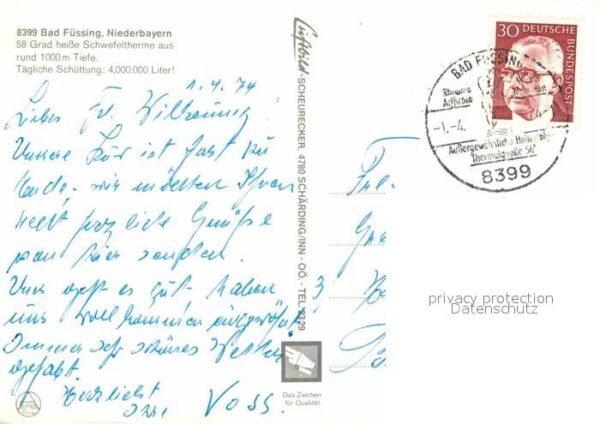 8399 Bad Füssing, Niederbayern
58 Grad heiße Schwefeltherme aus
rund 1000 m Tiefe.
Tägliche Schüttung: 4,000.000 Liter!
1.4.74
Liebes Frl.
Unsere Kur ist fast zu
Ende. wir möchten Ihnen
recht herzliche Grüße
von hier senden.
Uns geht es gut. haben
uns vollkommen
Immer sehr schönes Wetter
gehabt.
Herzlichst
Ihre Voss.
Luftbild-SCHEURECKER, 4780 SCHÄRDING/INN - OÖ. - TEL. 2329
Das Zeichen
für Qualität
30 DEUTSCHE
BUNDESPOST
BAD FÜSSING
Rheuma
Arthrose
-1.-4.
Außergewöhnliche Heilerfolge
Thermalquelle 56°
8399
Frl.
privacy protection
Datenschutz